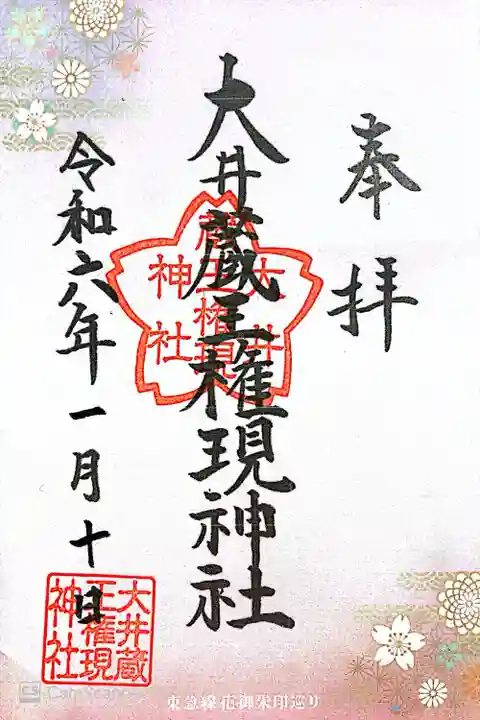 奉拝
大井蔵王権現神社
大井
蔵王権現
神社
令和六年一月十日
大井蔵
王権現
神社
東急線花御朱印巡り
CS CamScanner